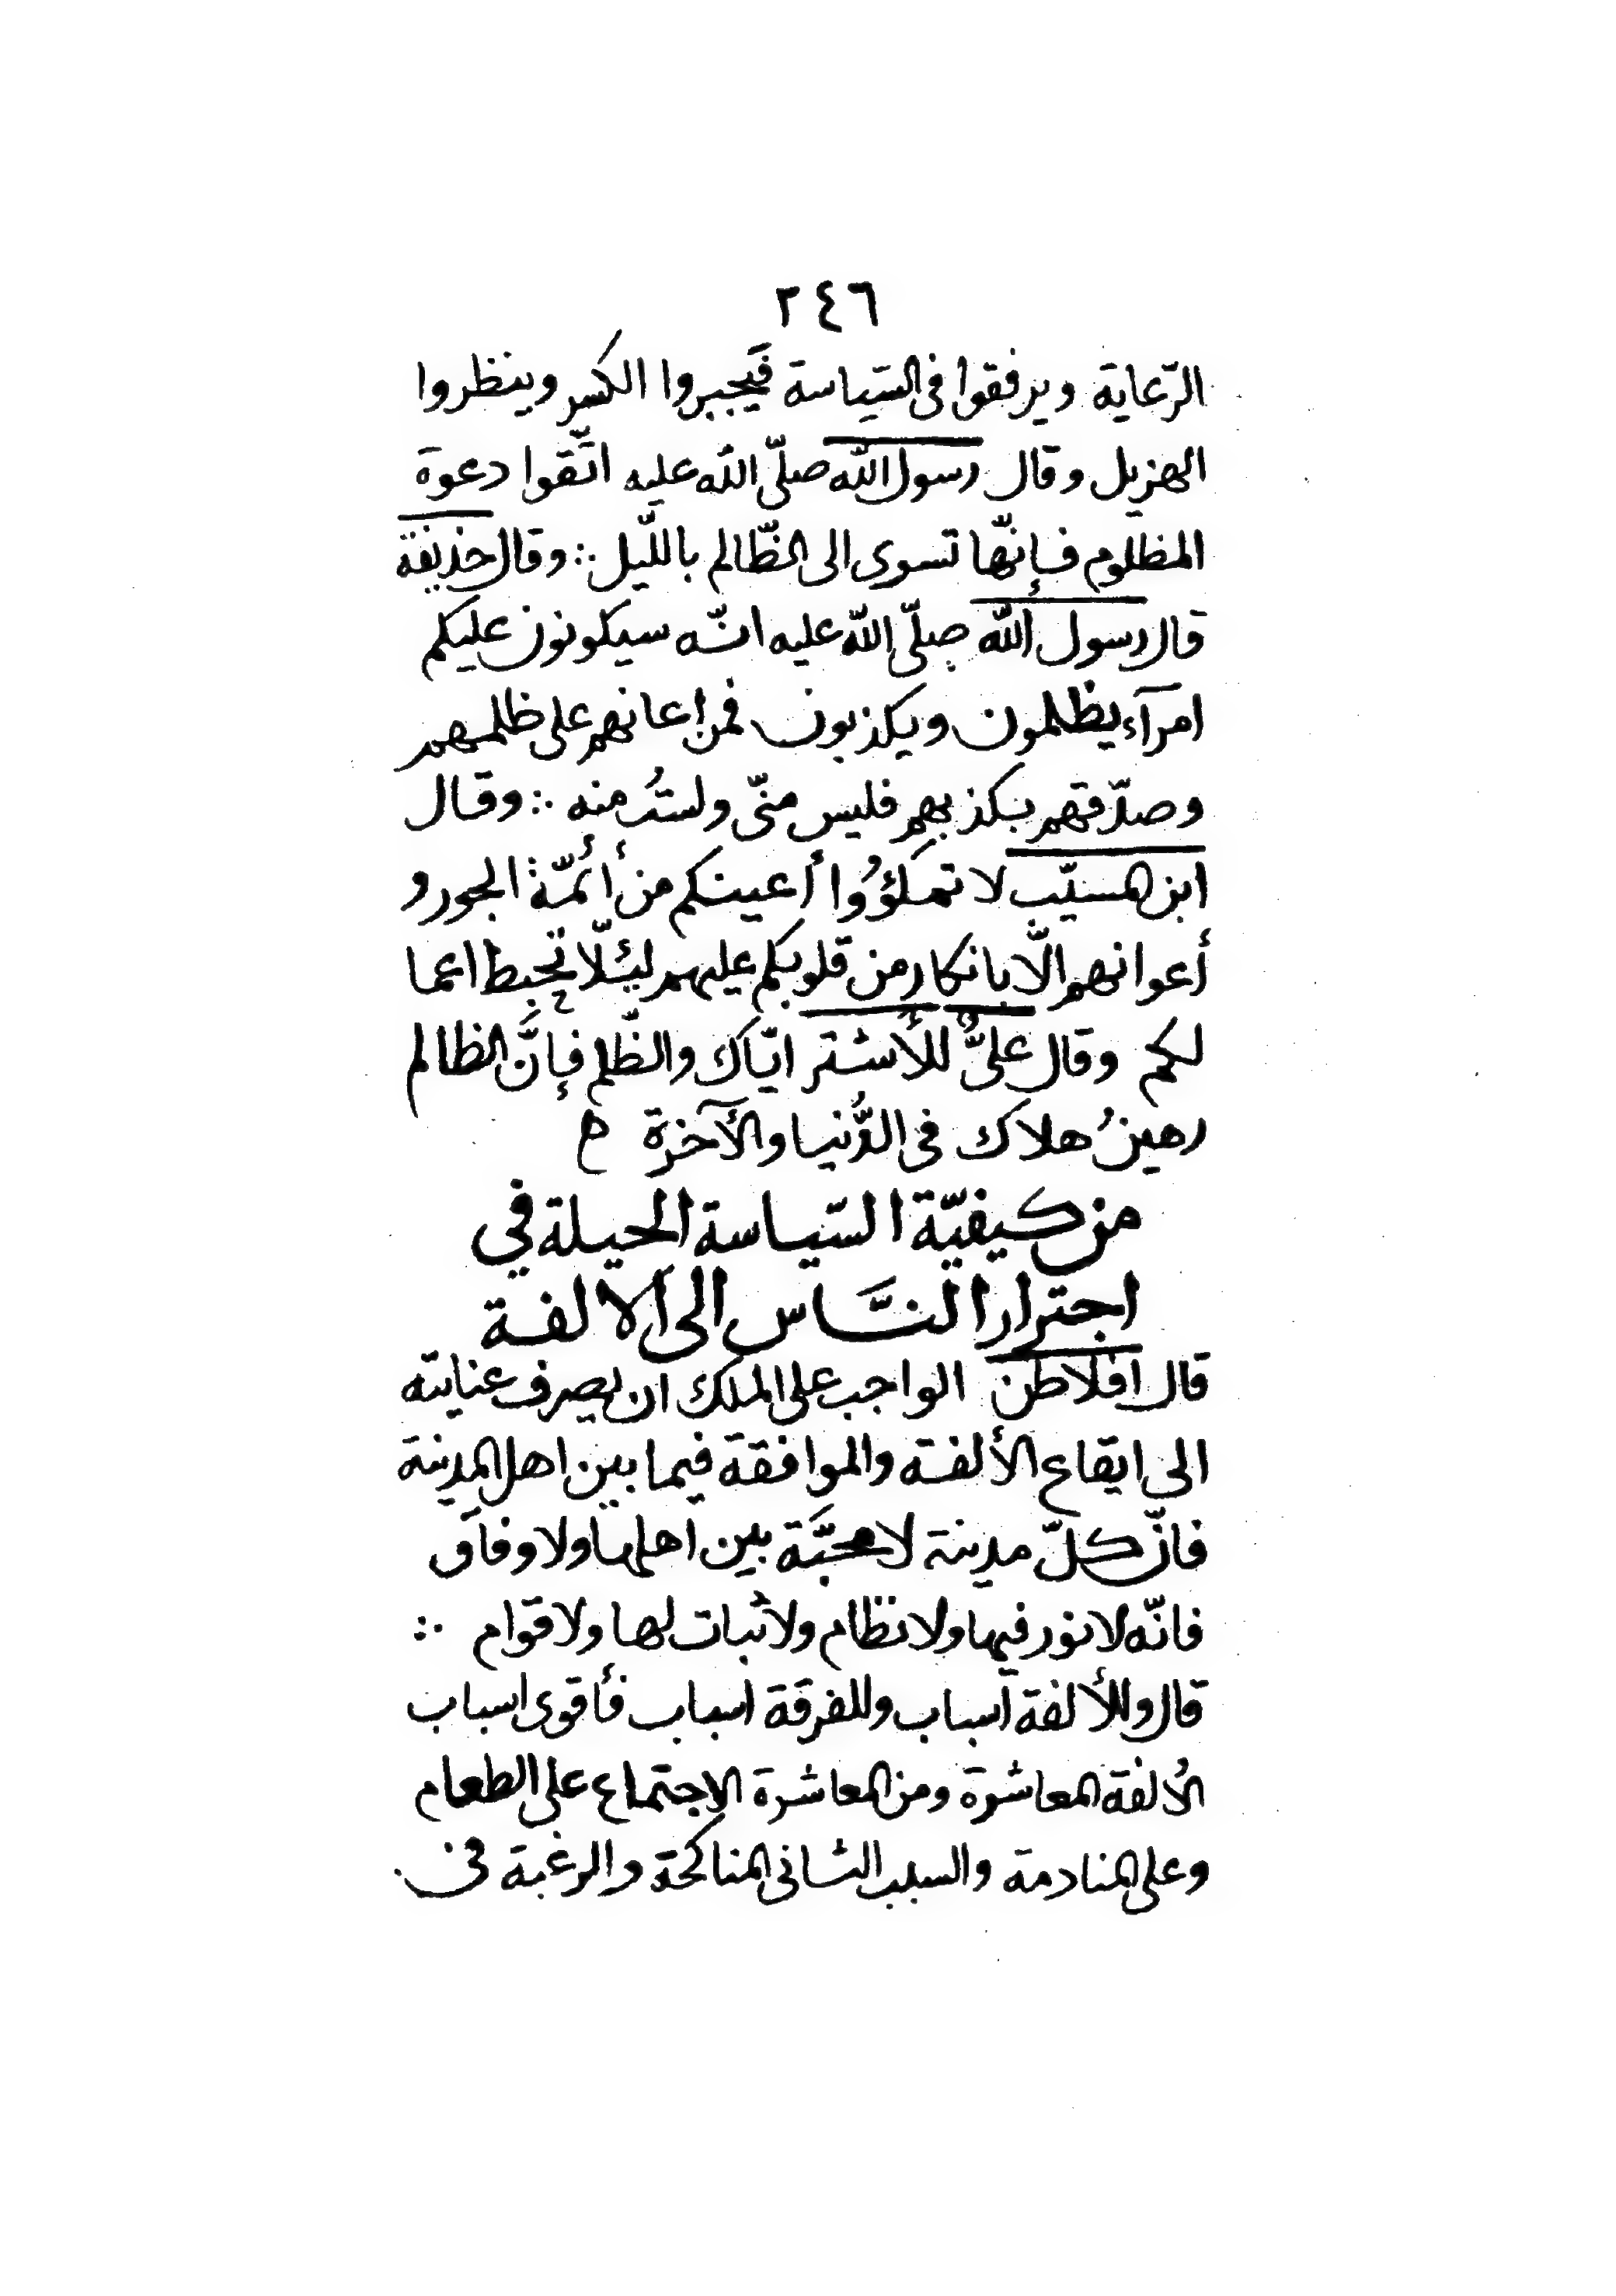 ٢٤٦
الرّعاية ويرفقوا فى السّياسة فَيجبروا الكسر وينظروا
الهزيل وقال رسول الله صلّى الله عليه اتّقوا دعوة
المظلوم فإنّها تسرى الى الظّالم باللّيل ∴ وقال حذيفة
قال رسول الله صلّى الله عليه انّه سيكونون عليكم
امرآء يظلمون ويكذبون فمن اعانهم على ظلمهم
وصدّقهم بكذبهم فليس منّى ولستُ منه ∴ وقال
ابن المسيّب لا تملؤُوا أعينكم من أئمّة الجور و
أعوانهم الّا بانكار من قلوبكم عليهم لئلّا تحبط اعما
لكم وقال علىٌّ للأشتر ايّاك والظّلم فإنَّ الظالم
رهينُ هلاك فى الدُّنيا والآخرة ح
من كيفيّة السّياسة الحيلة في
اجترار النَّاس الى الالفة
قال افلاطن الواجب على الملك ان يصرف عنايته
الى ايقاع الألفة والموافقة فيما بين اهل المدينة
فانّ كلّ مدينة لا محبَّة بين اهلها ولا وفاق
فانّه لا نور فيها ولا نظام ولا ثبات لها ولا قوام ∴
قال وللألفة اسباب وللفرقة اسباب فأقوى اسباب
الألفة المعاشرة ومن المعاشرة الاجتماع على الطعام
وعلى المنادمة والسبب الثانى المناكحة والرغبة فى